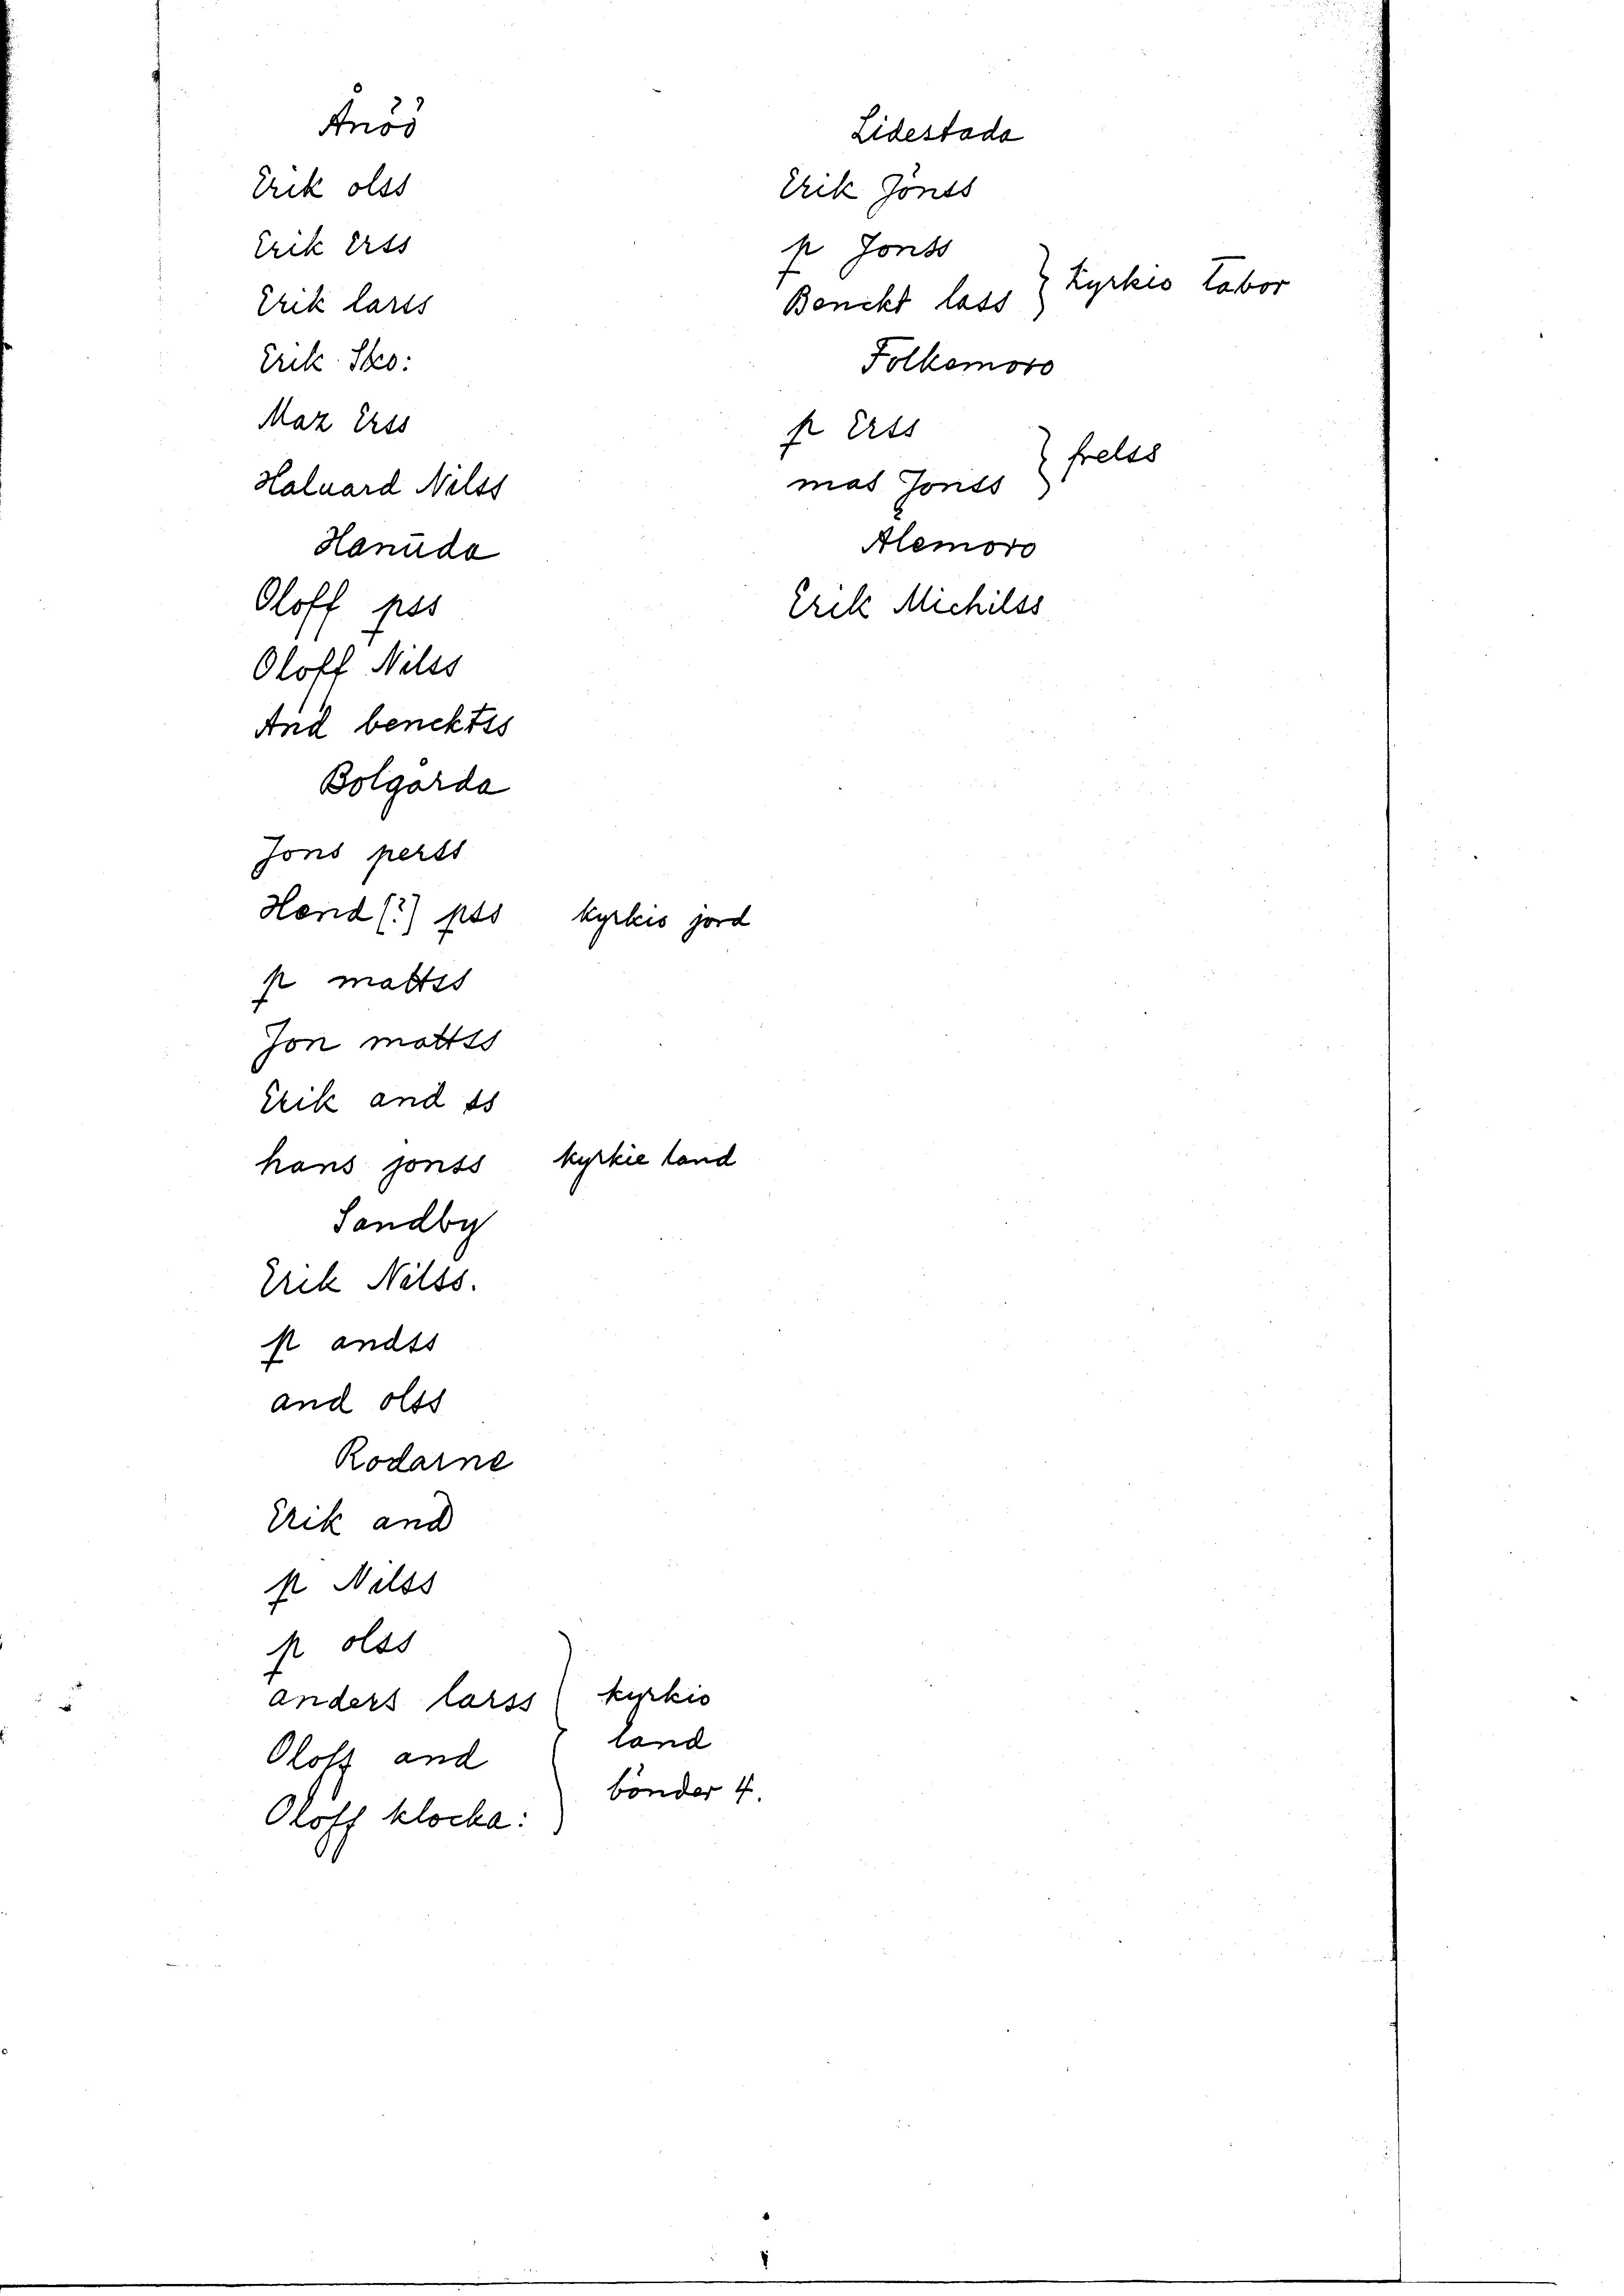 Ånöö
Erik olss
Erik Erss
Erik larss
Erik Sko:
Maz Erss
Haluard Nilss
Hanuda
Oloff pss
Oloff Nilss
And benektss
Bolgårda
Jons perss
Hend (?) pss kyrkio jord
p mattss
Jon mattss
Erik and ss
hans jonss kyrkie land
Sandby
Erik Nilss.
p andss
and olss
Rodarne
Erik and
p Nilss
p olss
anders larss kyrkio
Oloff and land
Oloff klocka: bönder 4.
Lidestada
Erik Jönss
p Jonss
Benckt lass kyrkio Labor
Folkemoro
p Erss
mas Jonss frelss
Alemoro
Erik Michilss